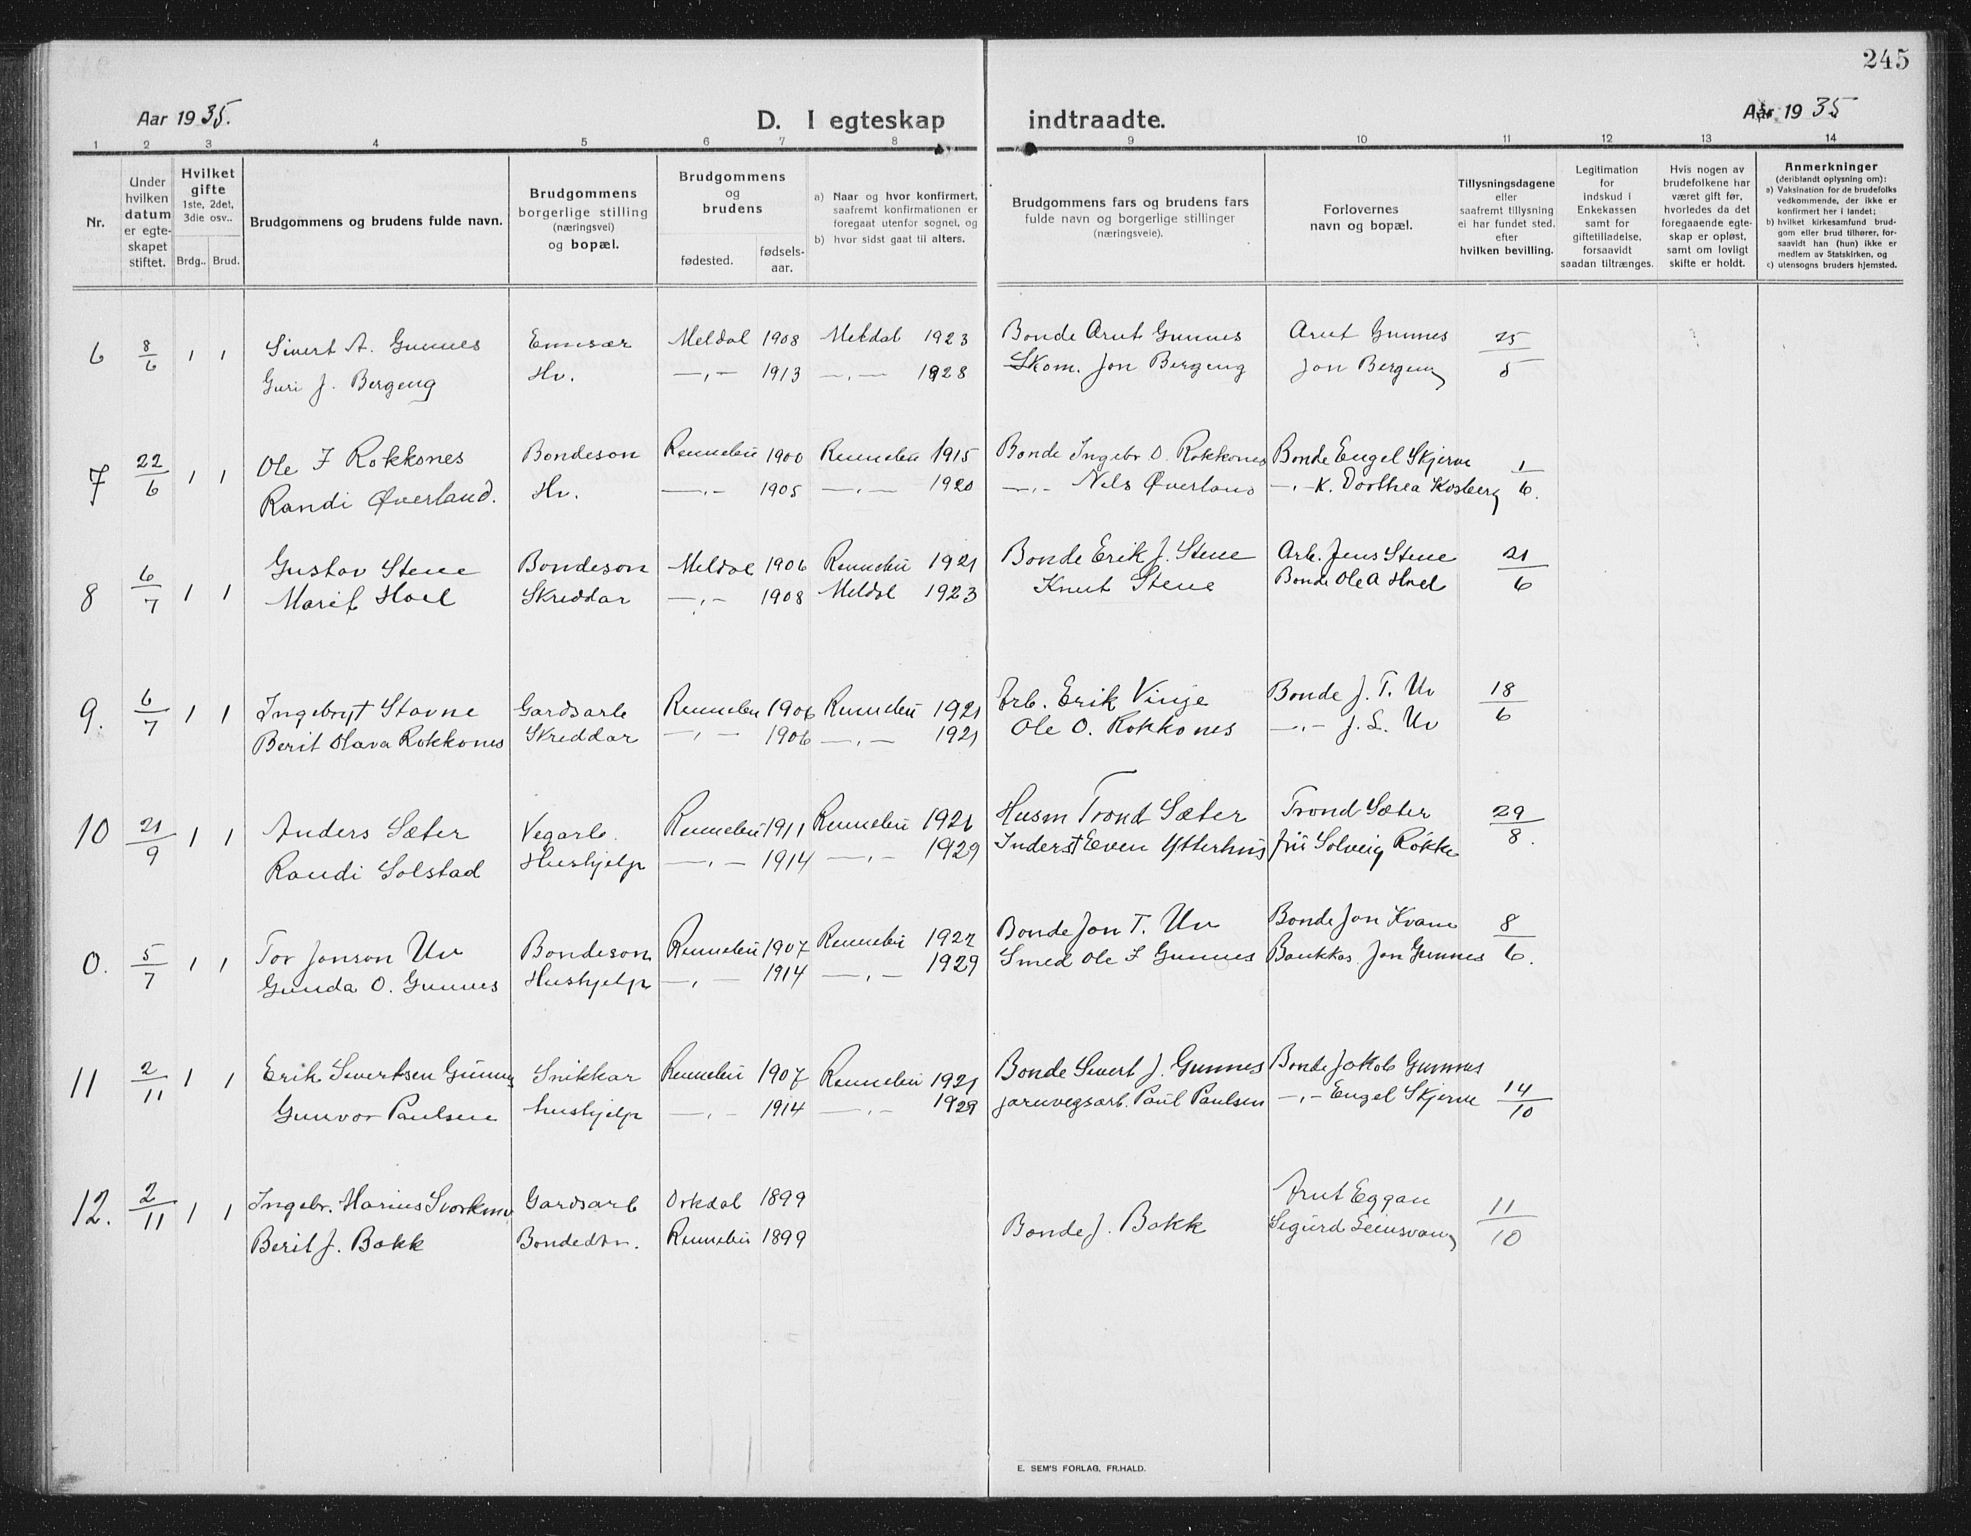 245
Aar 1935. D. I egteskap indtraadte. Aar 1935
1 2 3 4 5 6 7 8 9 10 11 12 13 14
Nr.
Under hvilken datum er egteskapet stiftet.
Hvilket gifte 1ste, 2det, 3die osv..
Brdg.. Brud.
Brudgommens og brudens fulde navn.
Brudgommens borgerlige stilling (næringsvei) og bopæl.
Brudgommens og brudens
fødested. fødselsaar.
a) Naar og hvor konfirmert, saafremt konfirmationen er foregaat utenfor sognet, og
b) hvor sidst gaat til alters.
Brudgommens fars og brudens fars fulde navn og borgerlige stillinger (næringsveie).
Forlovernes navn og bopæl.
Tillysningsdagene eller saafremt tillysning ei har fundet sted, efter hvilken bevilling.
Legitimation for indskud i Enkekassen samt for giftetilladelse, forsaavidt saadan tiltrænges.
Hvis nogen av brudefolkene har været gift før, hvorledes da det foregaaende egteskap er opløst, samt om lovligt skifte er holdt.
Anmerkninger (deriblandt oplysning om):
a) Vaksination for de brudefolks vedkommende, der ikke er konfirmert her i landet;
b) hvilket kirkesamfund brudgom eller brud tilhører, forsaavidt han (hun) ikke er medlem av Statskirken, og
c) utensogns bruders hjemsted.
6 8/6 1 1 Sivert A. Gunnes Meldal 1908 Meldal 1923 Bonde Arnt Gunnes Arnt Gunnes 25/5
Guri J. Bergeng Hv. —,,— 1913 —,,— 1928 Skom. Jon Bergeng Jon Bergeng
7 22/6 1 1 Ole I Rokkones Bondeson Rennebu 1900 Rennebu 1915 Bonde Ingebr O. Rokkones Bonde Engel Skjerve 1/6.
Randi Øverland. Hv. —,,— 1905 —,,— 1920 —,,— Nils Øverland —,,— K. Dorthea Kosberg
8 6/7 1 1 Gustav Stene Bondeson Meldal 1906 Rennebu 1921 Bonde Erik J. Stene Arb. Jens Stene 21/6
Marit Hoel Skreddar —,,— 1908 Meldal 1923 Knut Stene Bonde Ole A Hoel
9. 6/7 1 1 Ingebrygt Stavne Gardsarb Rennebu 1906 Rennebu 1921 Arb. Erik Vinje Bonde J. T. Uv 18/6
Berit Olava Rokkones Skreddar —,,— 1906 —,,— 1921 Ole O. Rokkones —,,— J. L. Uv
10 21/9 1 1 Anders Sæter Vegarb. Rennebu 1911 Rennebu 1926 Husm Trond Sæter Trond Sæter 29/8.
Randi Solstad Hushjelp —,,— 1914 —,,— 1929 Inderst Even Ytterhus Solveig Rokke
0. 5/7 1 1 Tor Jonson Uv Bondeson Rennebu 1907 Rennebu 1922 Bonde Jon T. Uv Bonde Jon Kvam 8/6.
Gunda O. Gunnes Hushjelp —,,— 1914 —,,— 1929 Smed Ole I Gunnes Bankkas. Jon Gunnes
11 2/11 1 1 Erik Sivertsen Gunnes Snikkar Rennebu 1907 Rennebu 1921 Bonde Sivert J. Gunnes Bonde Jakob Gunnes 14/10
Gunvor Paulsen hushjelp —,,— 1914 —,,— 1929 jarnvegsarb. Paul Paulsen —,,— Engel Skjerve
12. 2/11 1 1 Ingebr. Marius Svorkmo Gardsarb Orkdal 1899 Arnt Eggan 11/10
Berit J. Bakk Bondedtr. Rennebu 1899 Bonde J. Bakk Sigurd
E. SEM'S FORLAG, FR.HALD.